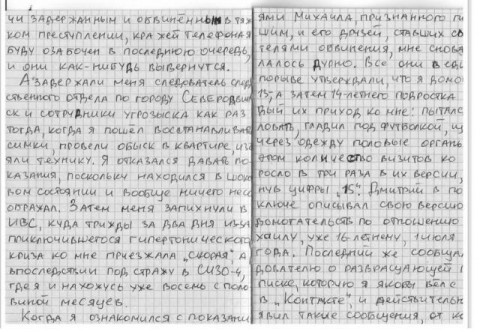 чи задержанным и обвинённым в тяж
ком преступлении, кражей телефона
буду озабочен в последнюю очередь,
и они как-нибудь вывернутся.
А задержали меня следователь след
ственного отдела по городу Северодви
ск и сотрудники угрозыска как раз
тогда, когда я пошёл восстанавлива
симки, провели обыск в квартире, изъ
яли технику. Я отказался давать по
казания, поскольку находился в шоко
вом состоянии и вообще ничего не с
ображал. Затем меня запихнули в
ИВС, куда трижды за два дня из-за
приключившегося гипертонического
криза ко мне приезжала „скорая", а
впоследствии под стражу в СИЗО-4,
где я и нахожусь уже восемь с поло
виной месяцев.
Когда я ознакомился с показани
ями Михаила, признанного
шим, и его друзей, ставших св
телями обвинения, мне снова
лалось дурно. Все они в один
порыве утверждали, что я домо
15, а затем 14-летнего подростка
вый их приход ко мне: пытал
ловать, гладил под футболкой, щ
через одежду половые органы
этом количество визитов ко
росло в три раза в их версии,
нув цифры „15". Дмитрий в по
ключе описывал свою версию
домогательств по отношению
хаилу, уже 16-летнему, 1 июля
года. Последний же сообщил
дователю о развращающей
писке, которую я якобы вёл с
в „Контакте", и действительно
явил такие сообщения, от ко